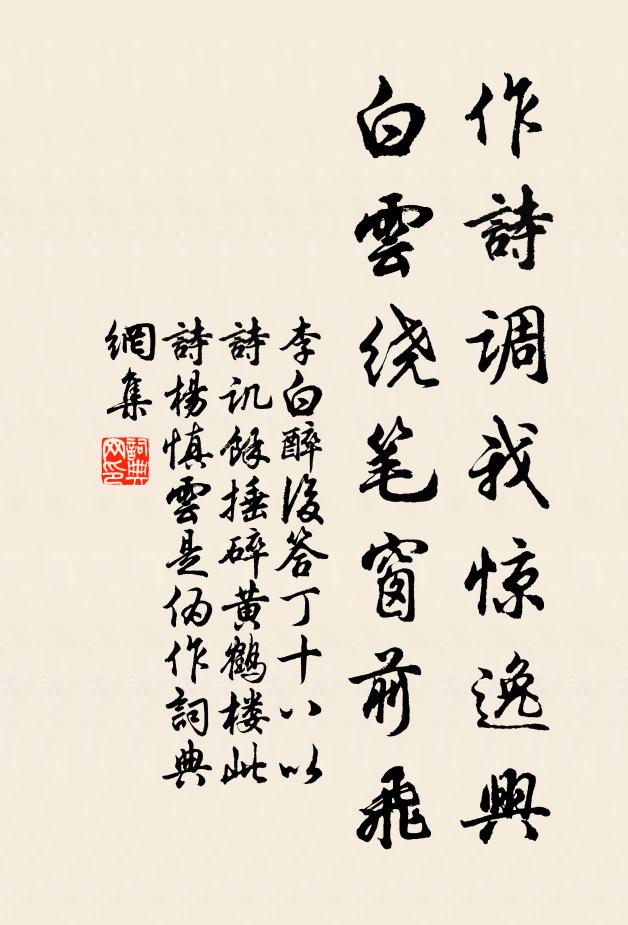 作詩調我惊逸興
白雲绕笔窗前飛
李白醉後答丁十八以
詩讥余捶碎黃鶴楼此
詩楊慎雲是伪作詞典
網集
詞典网印